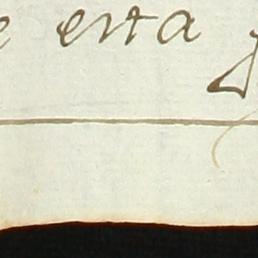 e esta